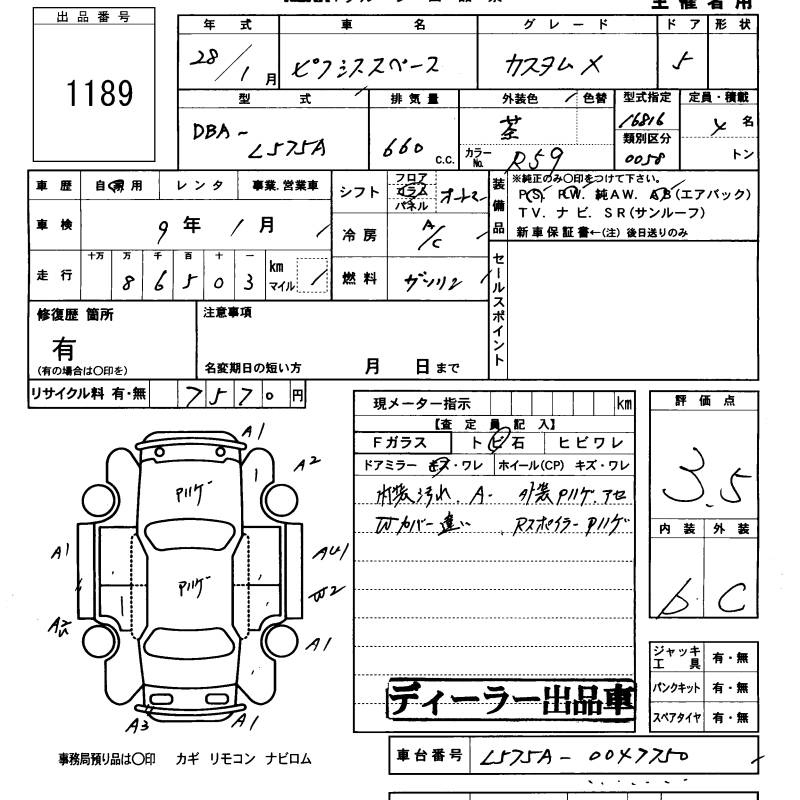 主催者用
出品番号
1189
年式 車名 グレード ドア 形状
28/1月 ピクシススペース カスタムX 5
型式 排気量 外装色 色替 型式指定 定員・積載
DBA-L575A 660 C.C. 茶 16816 4名
カラーNo. R59 類別区分 0058 トン
車歴 自家用 レンタ 事業.営業車 シフト フロア コラム パネル オートマ
装備品
※純正のみ〇印をつけて下さい。
PS. PW. 純AW. AB(エアバック)
TV. ナビ. SR(サンルーフ)
新車保証書←(注)後日送りのみ
車検 9年1月 冷房 A/C
走行 十万 万 千 百 十 一 km マイル 燃料 ガソリン
8 6 5 0 3
セールスポイント
修復歴 箇所 注意事項
有
(有の場合は〇印を) 名変期日の短い方 月 日まで
リサイクル料 有・無 7570円
現メーター指示 km
【査定員記入】
Fガラス トビ石 ヒビワレ
ドアミラー キズ・ワレ ホイール(CP) キズ・ワレ
内装汚れ. A- 外装Pハゲ.アセ
Wカバー違い .RスポイラーPハゲ
評価点
3.5
内装 外装
b C
A1
A2
Pハゲ
A1 AU1
Pハゲ
W2
A1
A3 A1
ジャッキ工具 有・無
パンクキット 有・無
スペアタイヤ 有・無
ディーラー出品車
事務局預り品は〇印 カギ リモコン ナビロム
車台番号 L575A-0047750